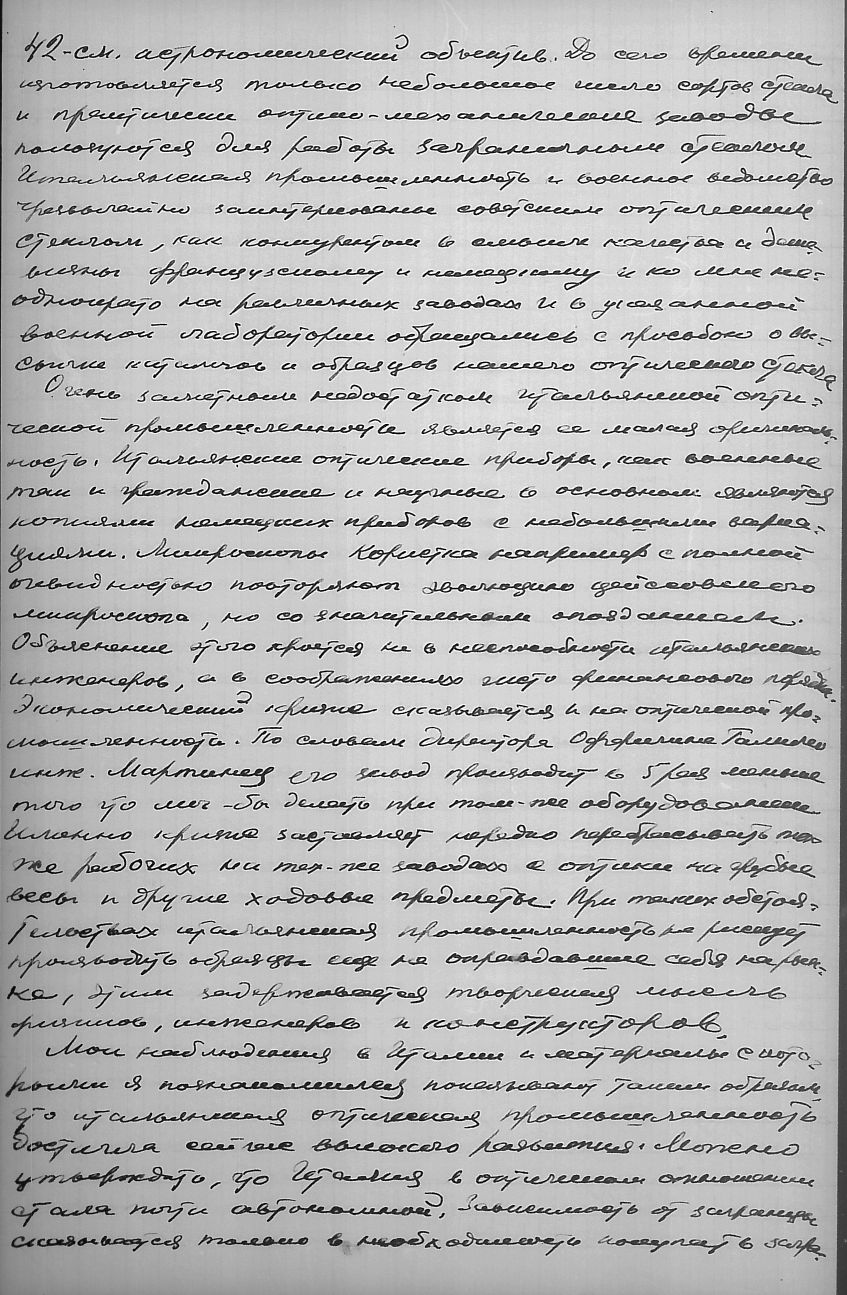 42-см. астрономический объектив. До сего времени
изготовляется только небольшое число сортов стекла
и практически оптико-механические заводы
пользуются для работы заграничным стеклом
Итальянская промышленность и военное ведомство
чрезвычайно заинтересованы советским оптическим
стеклом, как конкурентом в смысле качества и деше-
визны французскому и немецкому и ко мне не-
однократно на различных заводах и в указанной
военной лаборатории обращались с просьбой о вы-
сылке каталогов и образцов нашего оптического стекла
Очень заметным недостатком итальянской опти-
ческой промышленности является ее малая оригиналь-
ность. Итальянские оптические приборы, как военные
так и гражданские и научные в основном являются
копиями немецких приборов с небольшими вариа-
циями. Микроскопы Користка например с полной
очевидностью повторяют эволюцию цейссовского
микроскопа, но со значительным опозданием.
Объяснение этого кроется не в неспособности итальянских
инженеров, а в соображениях чисто финансового порядка.
Экономический кризис сказывается и на оптической про-
мышленности. По словам директора Оффичине Галилео
инж. Мартинец его завод производит в 5 раз меньше
того что мог-бы делать при том-же оборудовании
Именно кризис заставляет нередко перебрасывать тех
же рабочих на тех-же заводах с оптики на грубые
весы и другие ходовые предметы. При таких обстоя-
тельствах итальянская промышленность не рискует
производить образцы еще не оправдавшие себя на рын-
ке, этим задерживается творческая мысль
физиков, инженеров и конструкторов.
Мои наблюдения в Италии и материалы с кото-
рыми я познакомился показывают таким образом,
что итальянская оптическая промышленность
достигла сейчас высокого развития. Можно
утверждать, что Италия в оптическом отношении
стала почти автономной. Зависимость от заграницы
сказывается только в необходимости покупать загра-